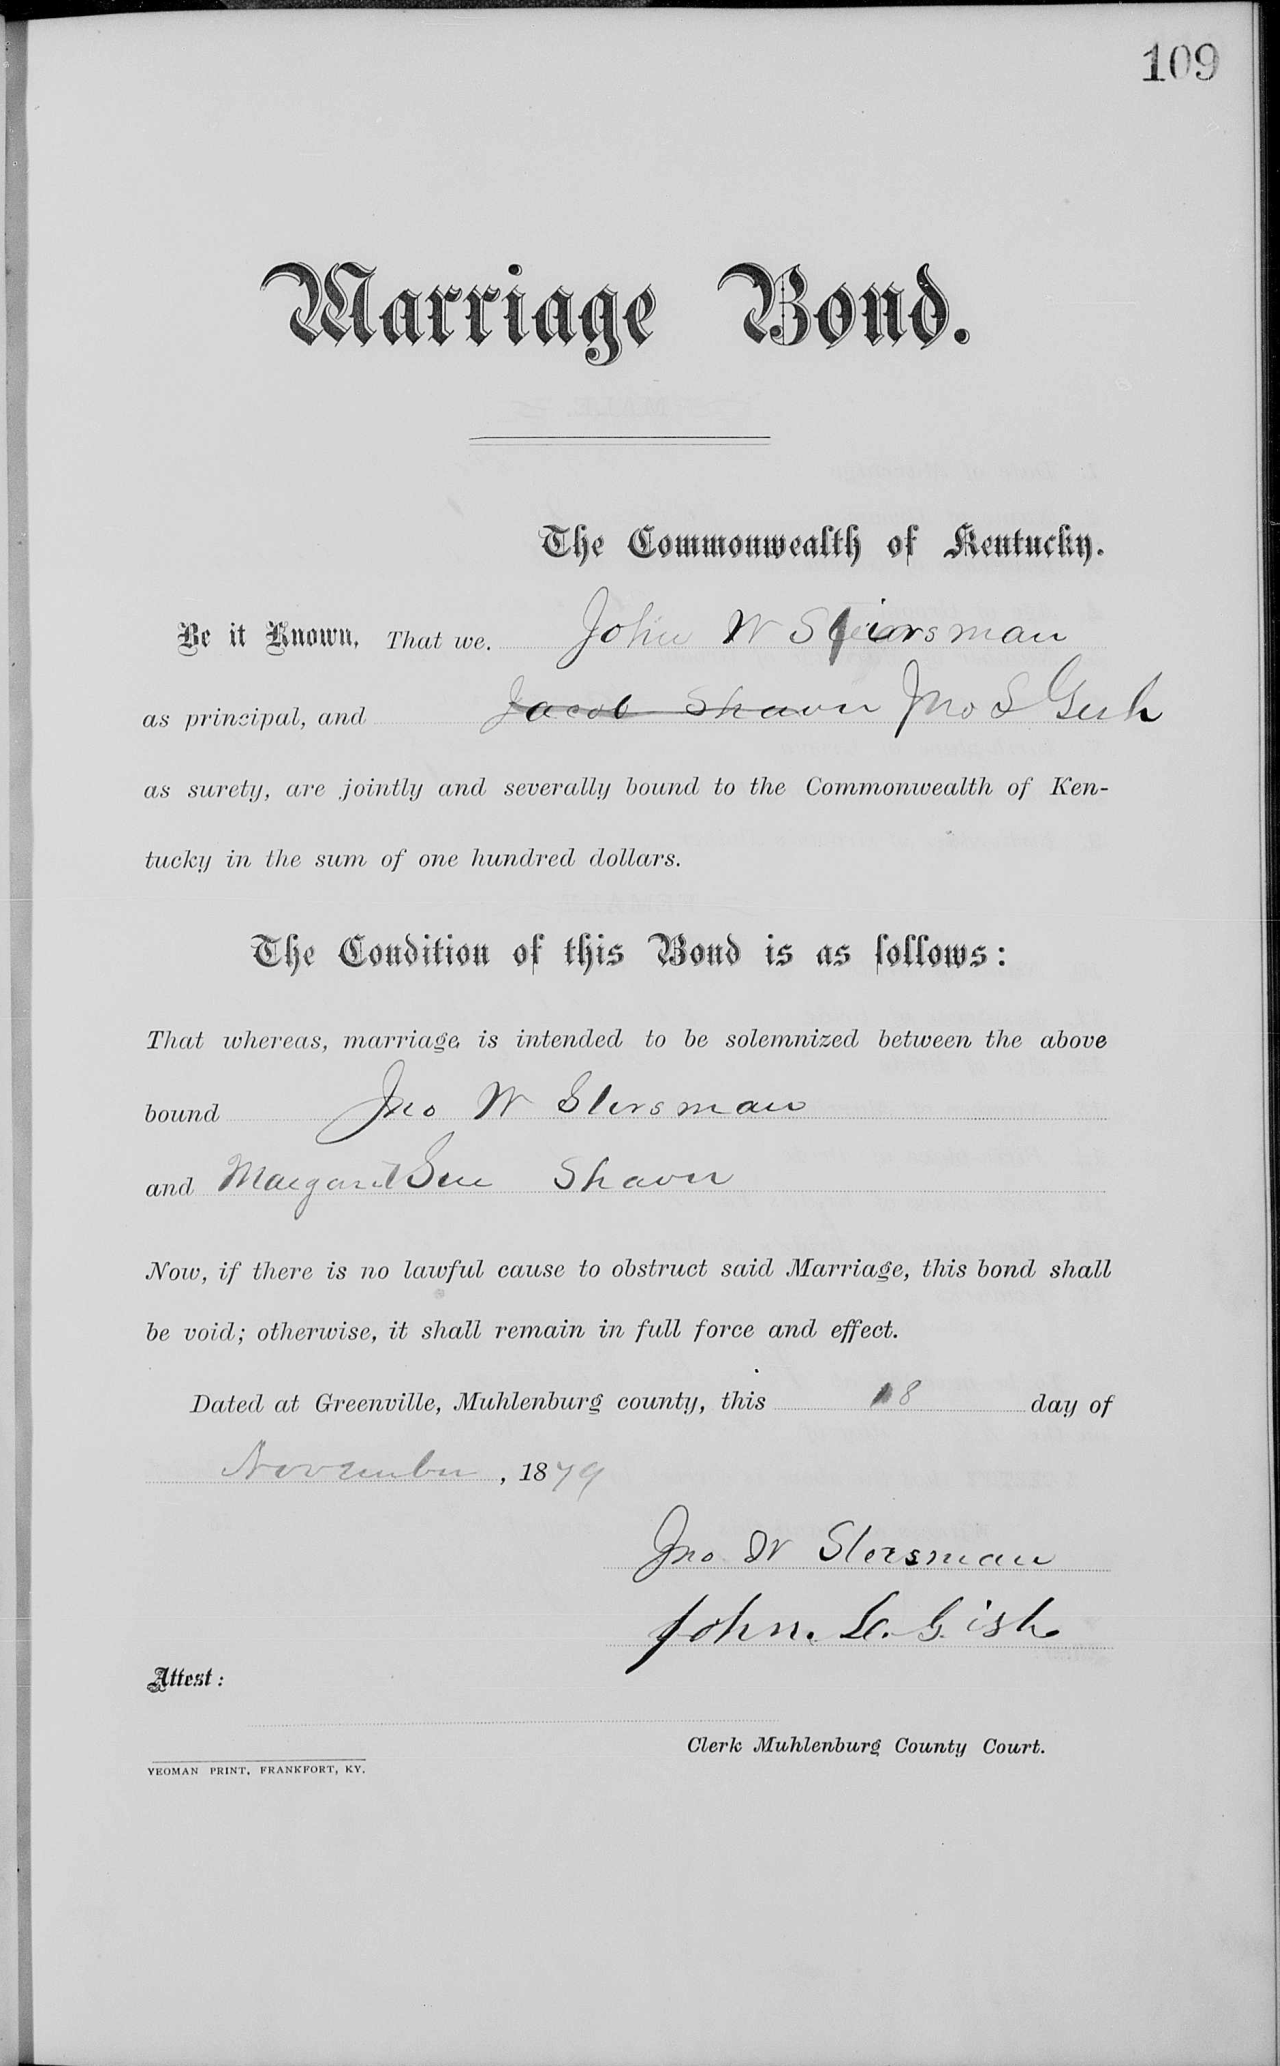 109
Marriage Bond.
The Commonwealth of Kentucky.
Be it Known, That we, John W Stirsman
as principal, and Jacob Shaver Jno S Gish
as surety, are jointly and severally bound to the Commonwealth of Ken-
tucky in the sum of one hundred dollars.
The Condition of this Bond is as follows:
That whereas, marriage is intended to be solemnized between the above
bound Jno W Stersman
and Margaret Sue Shaver
Now, if there is no lawful cause to obstruct said Marriage, this bond shall
be void; otherwise, it shall remain in full force and effect.
Dated at Greenville, Muhlenburg county, this 18 day of
November, 1879
Jno W Stersman
John. S. Gish
Attest:
Clerk Muhlenburg County Court.
YEOMAN PRINT, FRANKFORT, KY.